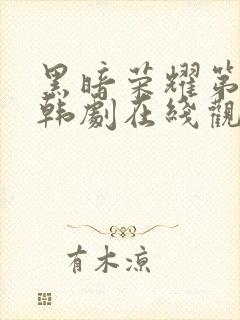 黑暗荣耀第
韩劇在綫觀
有木凉